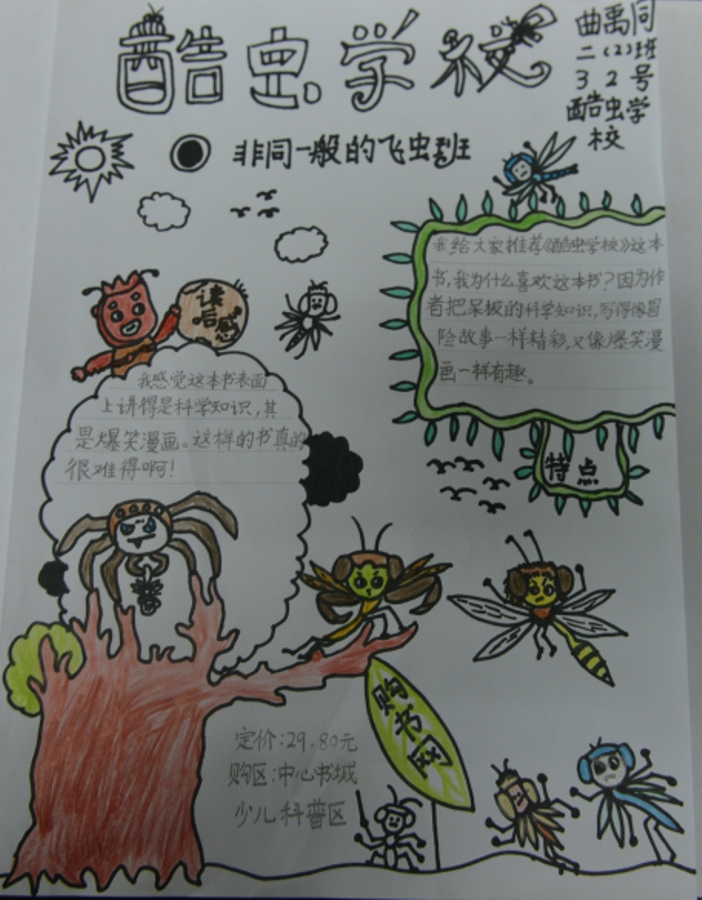 酷虫学校
曲禹同
二(2)班
32号
酷虫学
校
非同一般的飞虫班
我给大家推荐《酷虫学校》这本
书,我为什么喜欢这本书?因为作
者把呆板的科学知识,写得像冒
险故事一样精彩,又像爆笑漫
画一样有趣。
特点
读
后感
我感觉这本书表面
上讲得是科学知识,其
是爆笑漫画。这样的书真的
很难得啊!
购
书
网
定价:29.80元
购区:中心书城
少儿科普区